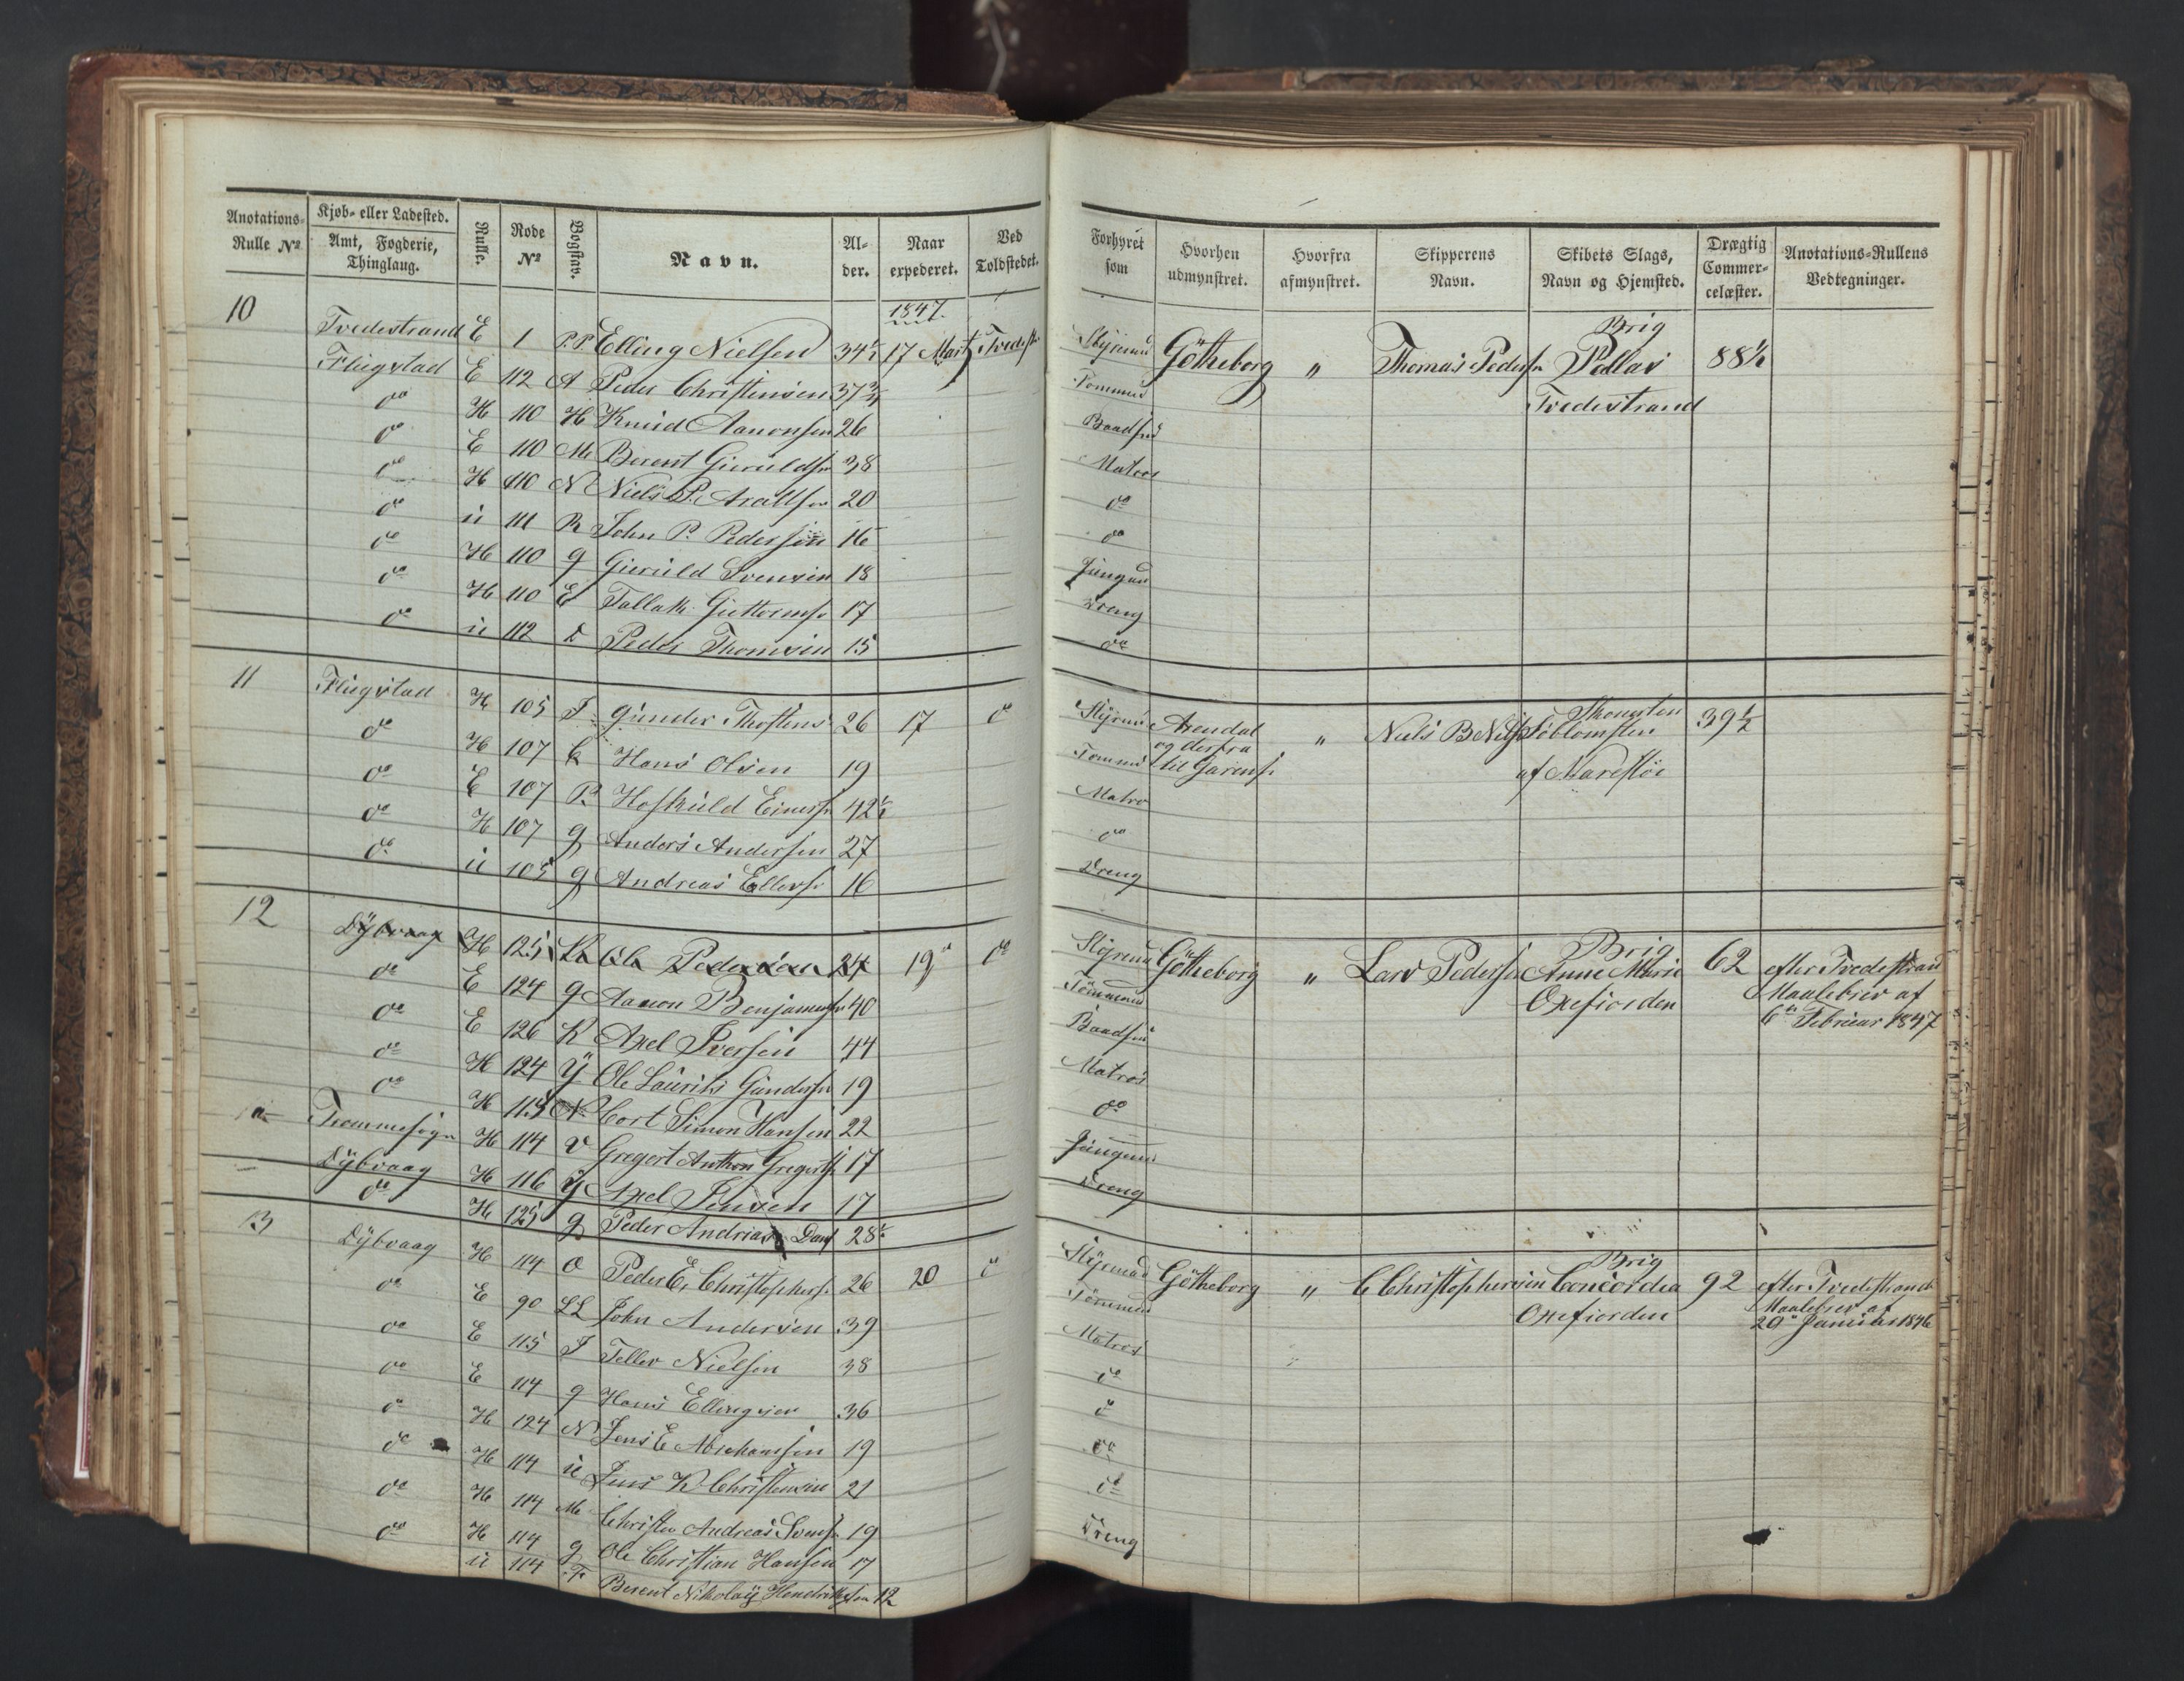 Anotations-Rulle No. | Kjøb- eller Ladested. Amt, Fogderie, Thinglaug. | Rulle. | Rode No. | Bogstav. | Navn. | Alder. | Naar expederet. | Ved Toldstedet. | Forhyret som | Hvorhen udmynstret. | Hvorfra afmynstret. | Skipperens Navn. | Skibets Slags, Navn og Hjemsted. | Drægtig Commercelæster. | Anotations-Rullens Vedtegninger.
1847
Brig
10 Tvedestrand E 1 P.P. Elling Nielsen 34½ 17 Marts Tvedestr Styrmd Götheborg " Thomas Peders Pallas 88½
Flugstad E 112 A Peder Christensen 37¾ Tømmd Tvedestrand
do H 110 H Knud Aanonsen 26 Baadsmd
do E 110 M Berent Gieruldsen 38 Matros
do H 110 N Niels P. 20 do
do u 111 R John P. Pedersen 16 do
do H 110 g Gieruld Svensen 18 Jungmd
do H 110 E Tallak Guttorms. 17 Dreng
do u 112 Peder Thomsen 15 do
11 Flugstad H 105 J Gunder Thostens 26 17 do Styrmd Arendal " Niels B Niels Søblomsten 39½
og derfra
do H 107 Hans Olsen 19 Tømmd til af Narestöe
do E 107 P. Hoskuld Einers 42½ Matros
do H 107 g Anders Andersen 27 do
do u 105 g Andreas Ellefs. 16 Dreng
12 Dÿbvaag H 125 Ole Pedersen 24 19 do Styrmd Götheborg " Lars Pedersen Brig Anne Marie 62 efter Tvedestrand
do E 124 g Aanon Benjamins 40 Tømmermd Oxefiorden Maalebrev af
do E 126 K Axel Iversen 44 Baadsmd 6te Februar 1847
do H 124 Ÿ Ole Laurits Gunders 19 Matros
do H 115 N Cort Simon Hansen 22 do
Trommesogn H 114 V Gregert Anthon Gregerts 17 Jungmd
Dÿbvaag H 116 Ÿ Axel Jensen 17 Dreng
do H 125 g Peder Andreas Dan 28½
13 Dÿbvaag H 114 O Peder E. Christophers. 26 20 do Styrmand Götheborg " C Christophersen Brig Concordia 92 efter Tvedestrand
do E 90 LL John Andersen 39 Tømmd Oxefiorden Maalebrev af
do E 115 J Tellev Nielsen 38 Matros 20 Januar 1846
do E 114 g Hans Ellingsen 36 do
do H 124 N Jens E Abrahamsen 19 do
do H 114 u Jens K Christensen 21 do
do H 114 M Christen Andreas Svends 19 do
do H 114 g Ole Christian Hansen 17 Dreng
u 114 F Berent Nikolaÿ Hendriksen 12